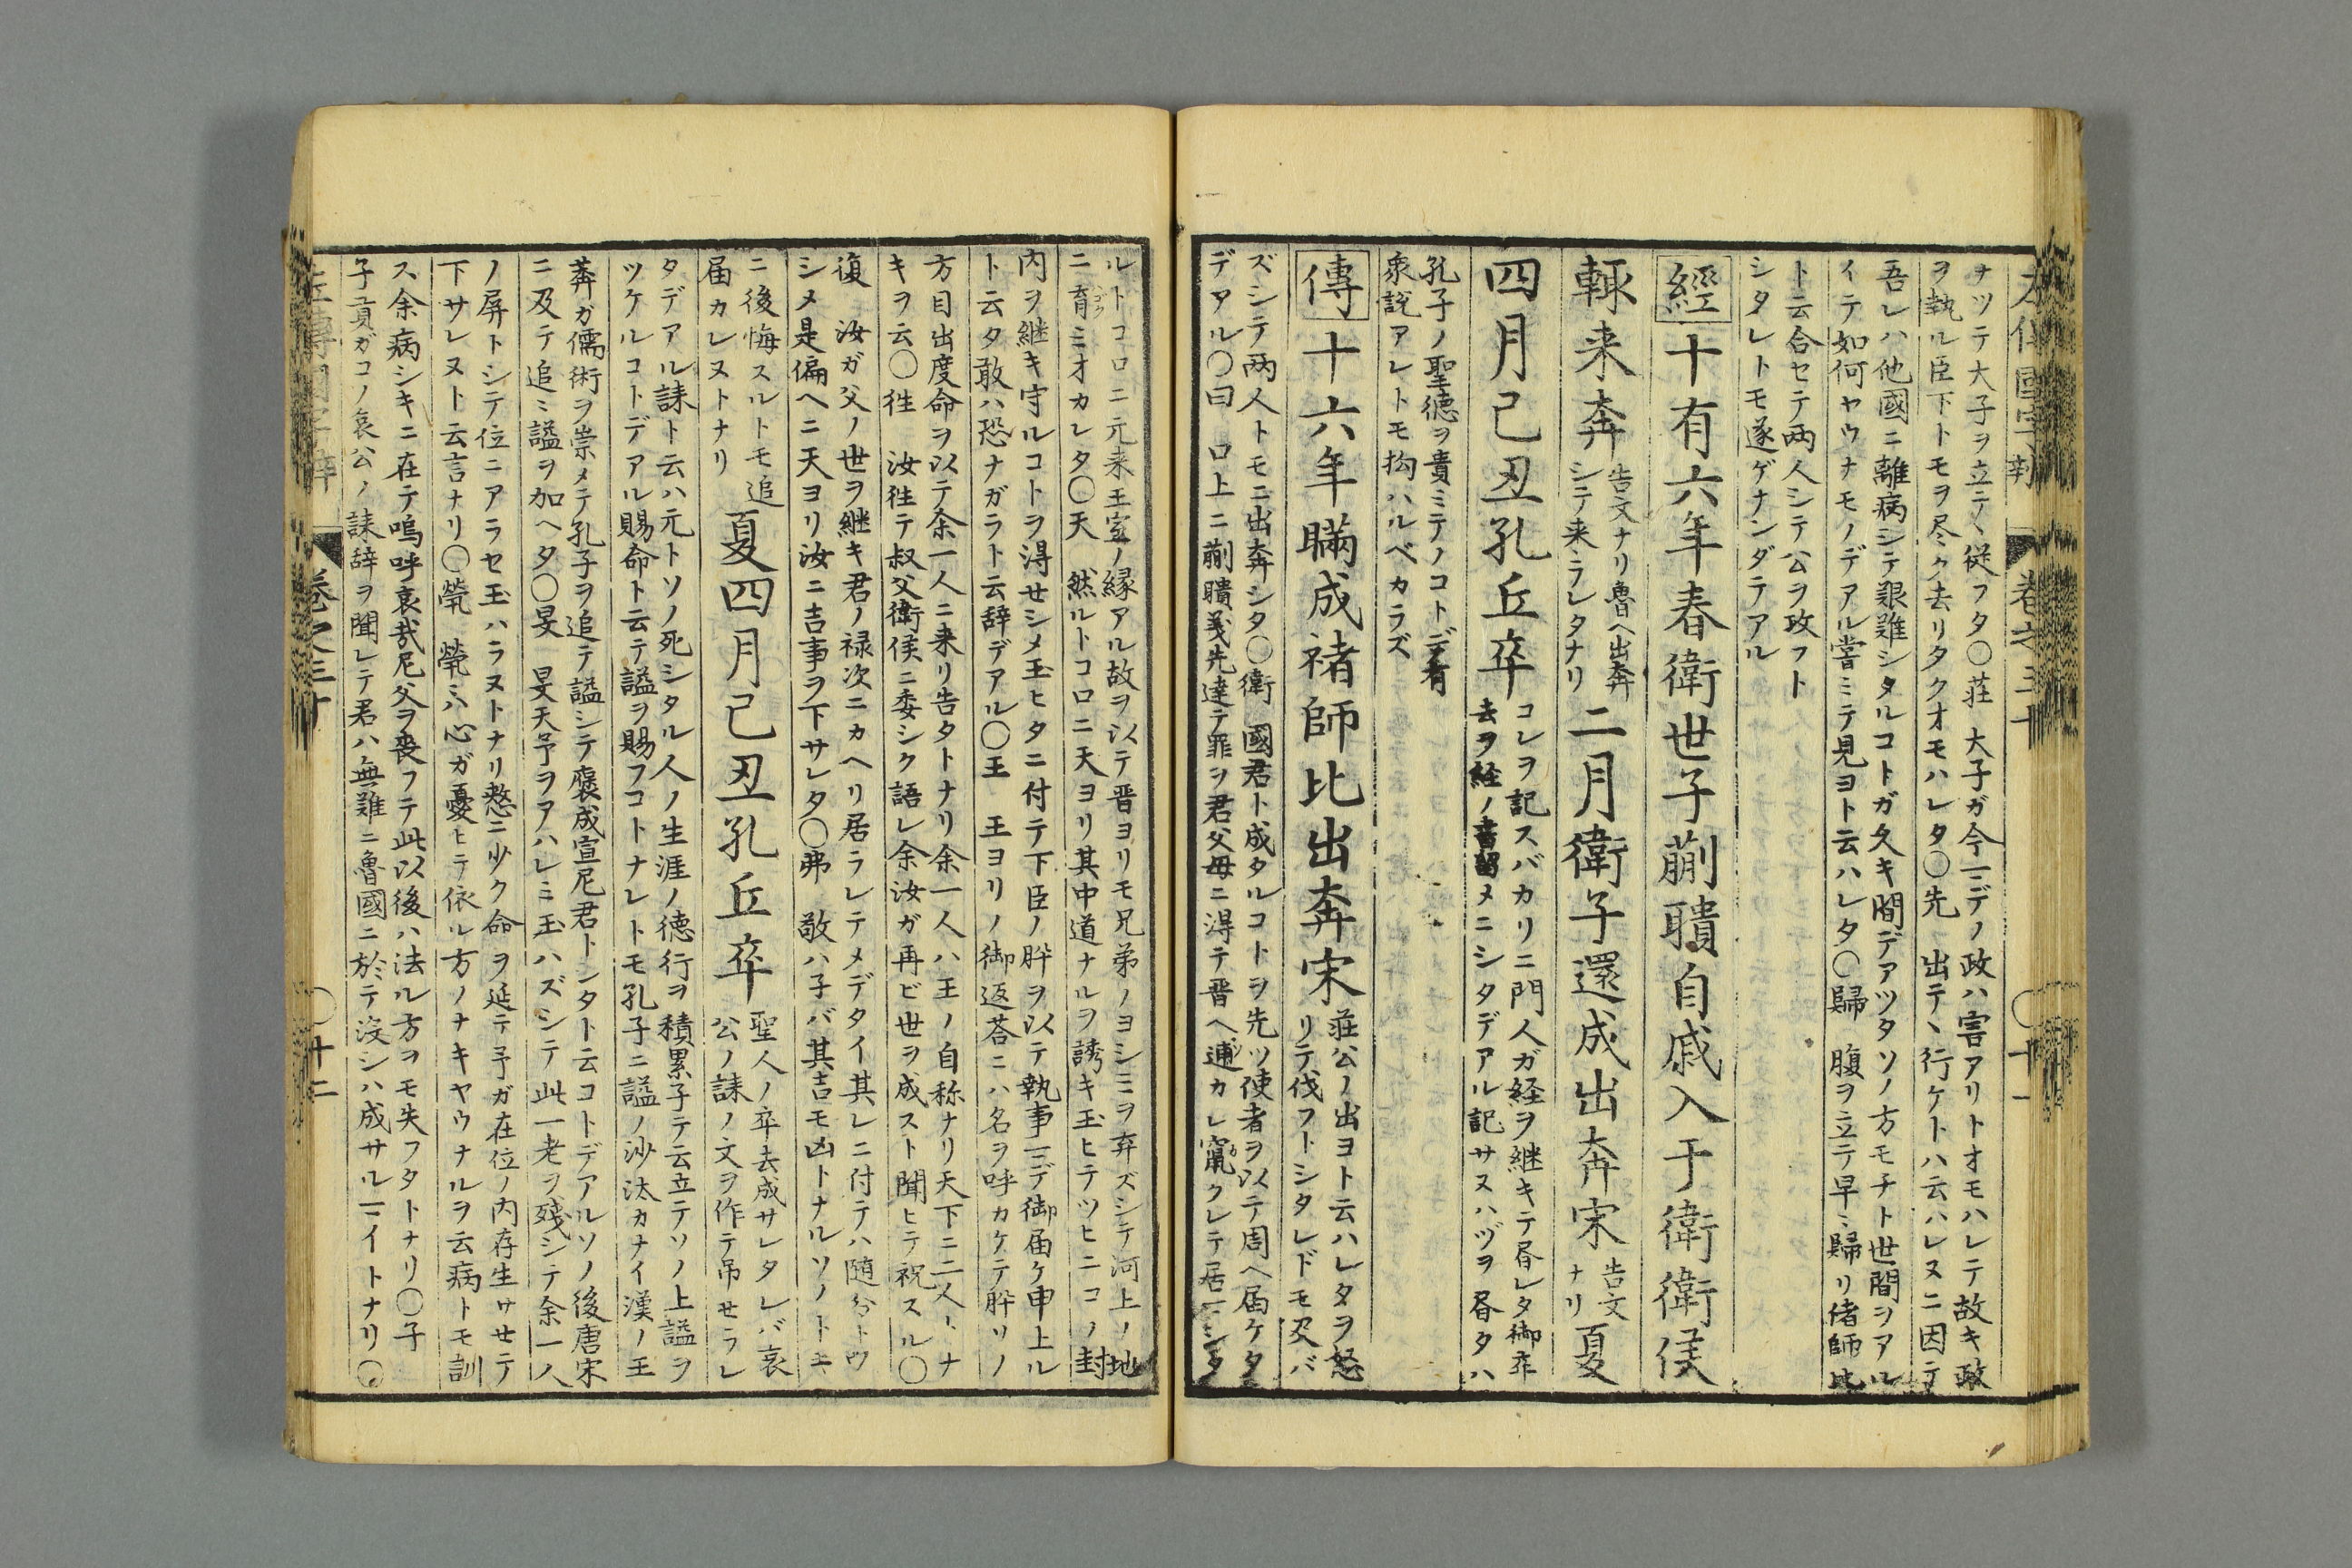 ナツテ大子ヲ立テヽ従フタ〇荘 大子ガ今ニデノ政ハ害アリトオモハレテ故キ政
ヲ執ル臣下トモヲ尽ク去リタクオモハレタ〇先 出テヽ行ケトハ云ハレヌニ因テ
吾レハ他國ニ離病シテ艱難シタルコトガ久キ間デアツタソノ方モチト世間ヲアル
イテ如何ヤウナモノデアル嘗ミテ見ヨト云ハレタ〇歸 腹ヲ立テ早ミ歸リ禇師比
ト云合セテ两人シテ公ヲ攻フト
シタレトモ遂ゲナンダテアル
經十有六年春衛世子蒯聵自戚入于衛衛侯
輒来奔 告文ナリ魯ヘ出奔
シテ来ラレタナリ
二月衛子還成出奔宋 告文
ナリ
夏
四月己丑孔丘卒 コレヲ記スバカリニ門人ガ経ヲ継キテ居レタ御卒
去ヲ経ノ書留メニシタデアル記サヌハヅヲ居タハ
孔子ノ聖徳ヲ貴ミテノコトデ有
衆説アレトモ拘ハルベカラズ
傳十六年瞞成禇師比出奔宋 荘公ノ出ヨト云ハレタヲ怒
リテ伐フトシタレドモ及バ
ズシテ两人トモニ出奔シタ〇衛 國君ト成タルコトヲ先ツ使者ヲ以テ周ヘ届ケタ
デアル〇曰 口上ニ蒯聵義先達テ罪ヲ君父母ニ得テ晋ヘ逋カレ竄クレテ居ニシタ
ルトコロニ元来王室ノ縁アル故ヲ以テ晋ヨリモ兄弟ノヨシミヲ弃ズシテ河上ノ地
ニ育ミオカレタ〇天 然ルトコロニ天ヨリ其中道ナルヲ誘キ玉ヒテツヒニコノ封
内ヲ継キ守ルコトヲ得セシメ玉ヒタニ付テ下臣ノ肸ヲ以テ執事ニデ御届ケ申上ル
ト云タ敢ハ恐ナガラト云辞デアル〇王 王ヨリノ御返荅ニハ名ヲ呼カケテ肸リノ
方目出度命ヲ以テ余一人ニ来リ告タトナリ余一人ハ王ノ自称ナリ天下ニ二人トナ
キヲ云〇徃 汝徃テ叔父衛侯ニ委シク語レ余汝ガ再ビ世ヲ成スト聞ヒテ祝スル〇
復 汝ガ父ノ世ヲ継キ君ノ禄次ニカヘリ居ラレテメデタイ其レニ付テハ随分トツ
シメ是偏ヘニ天ヨリ汝ニ吉事ヲ下サレタ〇弗 敬ハ子バ其吉モ凶トナルソノトキ
ニ後悔スルトモ追
届カレヌトナリ
夏四月己丑孔丘卒 聖人ノ卒去成サレタレバ哀
公ノ誄ノ文ヲ作テ吊セラレ
タデアル誄ト云ハ元トソノ死シタル人ノ生涯ノ德行ヲ積累子テ云立テソノ上謚ヲ
ツケルコトデアル賜命ト云テ謚ヲ賜フコトナレトモ孔子ニ謚ノ沙汰カナイ漢ノ王
莾ガ儒術ヲ崇メテ孔子ヲ追テ謚シテ褒成宣尼君トシタト云コトデアルソノ後唐宋
ニ及テ追ミ謚ヲ加ヘタ〇旻 旻天予ヲアハレミ玉ハズシテ此一老ヲ残シテ余一人
ノ屏トシテ位ニアラセ玉ハラヌトナリ憖ニ少ク命ヲ延テ予ガ在位ノ内存生サセテ
下サレヌト云言ナリ〇煢 煢ミハ心ガ憂ヒテ依ル方ノナキヤウナルヲ云病トモ訓
ス余病シキニ在テ嗚呼哀哉尼父ヲ喪フテ此以後ハ法ル方ヲモ失フタトナリ〇子
子貢ガコノ哀公ノ誄辞ヲ聞レテ君ハ無難ニ魯國ニ於テ沒シハ成サルニイトナリ〇
左傳國字辯 卷之三十 〇十二